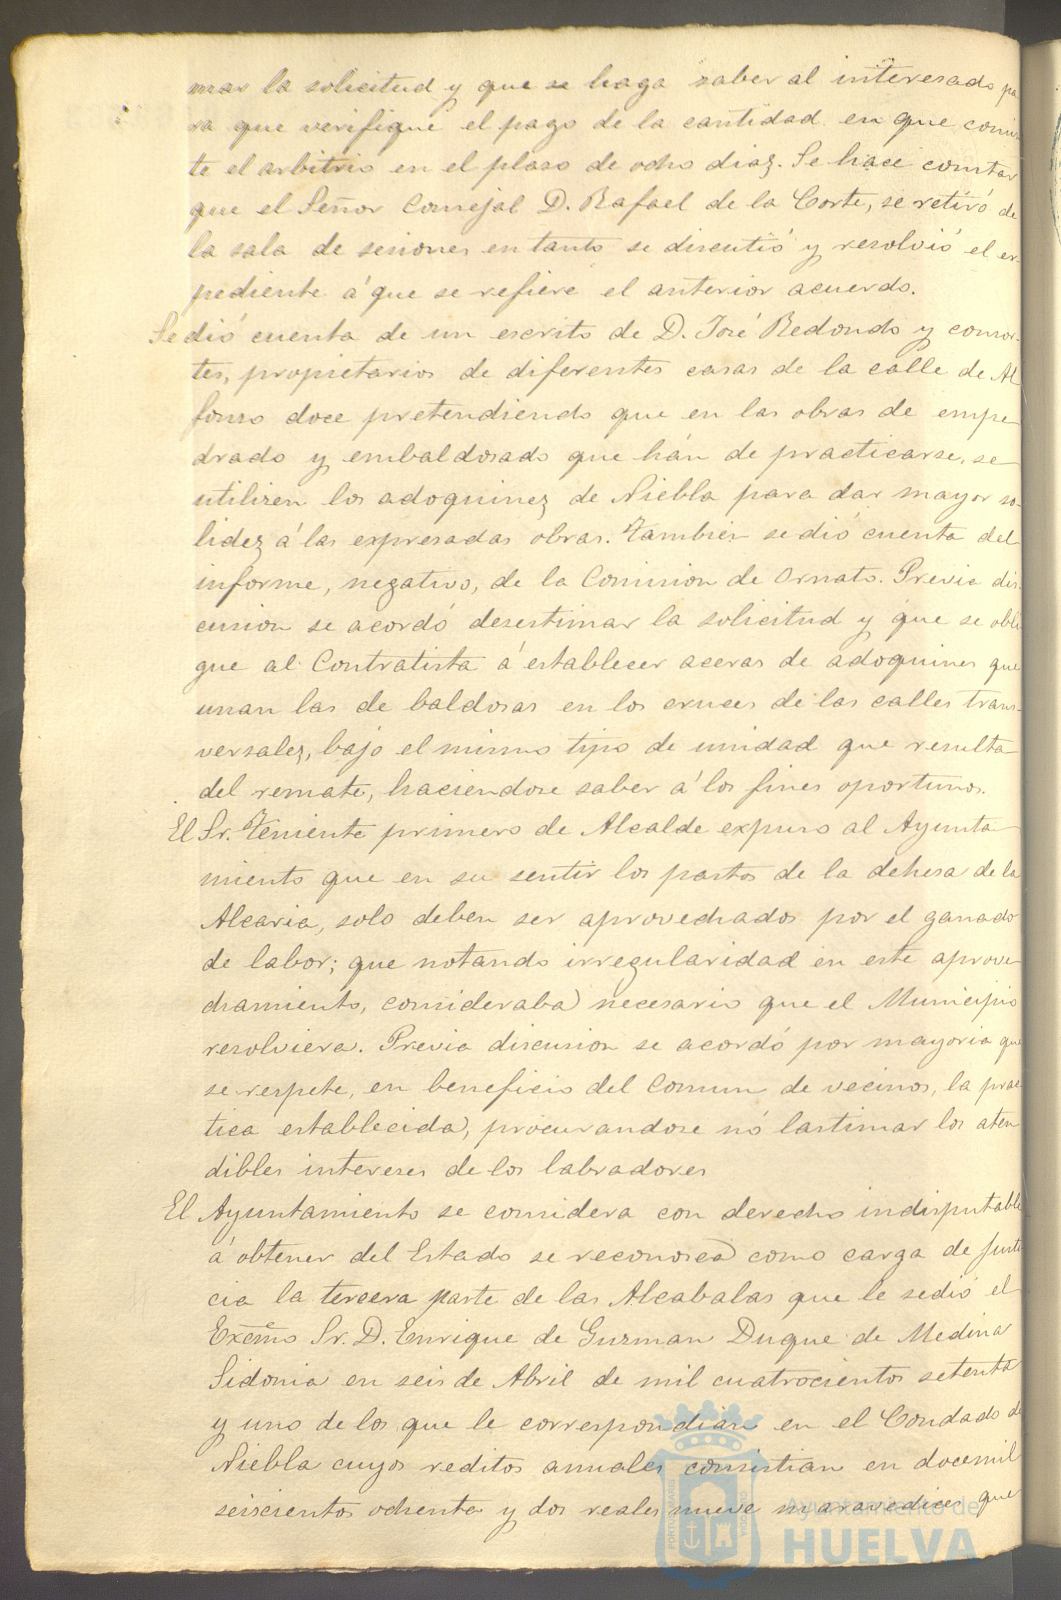 mar la solicitud y que se haga saber al interesado pa
ra que verifique el pago de la cantidad en que consis
te el arbitrio en el plaso de ocho diaz. Se hace constar
que el Señor Consejal D. Rafael de la Corte, se retiró de
la sala de sesiones en tanto se discutió y resolvió el ex-
pediente á que se refiere el anterior acuerdo.
Se dió cuenta de un escrito de D. José Redondo y consor-
tes, propietarios de diferentes casas de la calle de Al
fonso doce pretendiendo que en las obras de empe-
drado y embaldosado que hán de practicarse, se
utilisen los adoquinez de Niebla para dar mayor so-
lidez á las expresadas obras. Tambien se dió cuenta del
informe, negativo, de la Comision de Ornato. Previa dis-
cusion se acordó desestimar la solicitud y que se obli
gue al Contratista á establecer aceras de adoquines que
unan las de baldosas en los cruces de las calles trans-
versalez, bajo el mismo tipo de unidad que resulta
del remate, haciendose saber á los fines oportunos.
El Sr. Teniente primero de Alcalde expuso al Ayunta-
miento que en su sentir los pastos de la dehesa de la
Alcaria, solo deben ser aprovechados por el ganado
de labor; que notando irregularidad en este aprove-
chamiento, consideraba necesario que el Municipio
resolviera. Previa discusion se acordó por mayoria que
se respete, en beneficio del Comun de vecinos, la prac
tica establecida, procurandose nó lastimar los aten
dibles intereses de los labradores
El Ayuntamiento se considera con derecho indisputable
á obtener del Estado se reconosca como carga de justi
cia la tercera parte de las Alcabalas que le sedió el
Excmo Sr. D. Enrique de Guzman Duque de Medina
Sidonia en seis de Abril de mil cuatrocientos setenta
y uno de los que le correspondian en el Condado de
Niebla cuyos reditos anuales consistian en docemil
seiscientos ochenta y dos reales nueve maravedices que
Ayuntamiento de
HUELVA